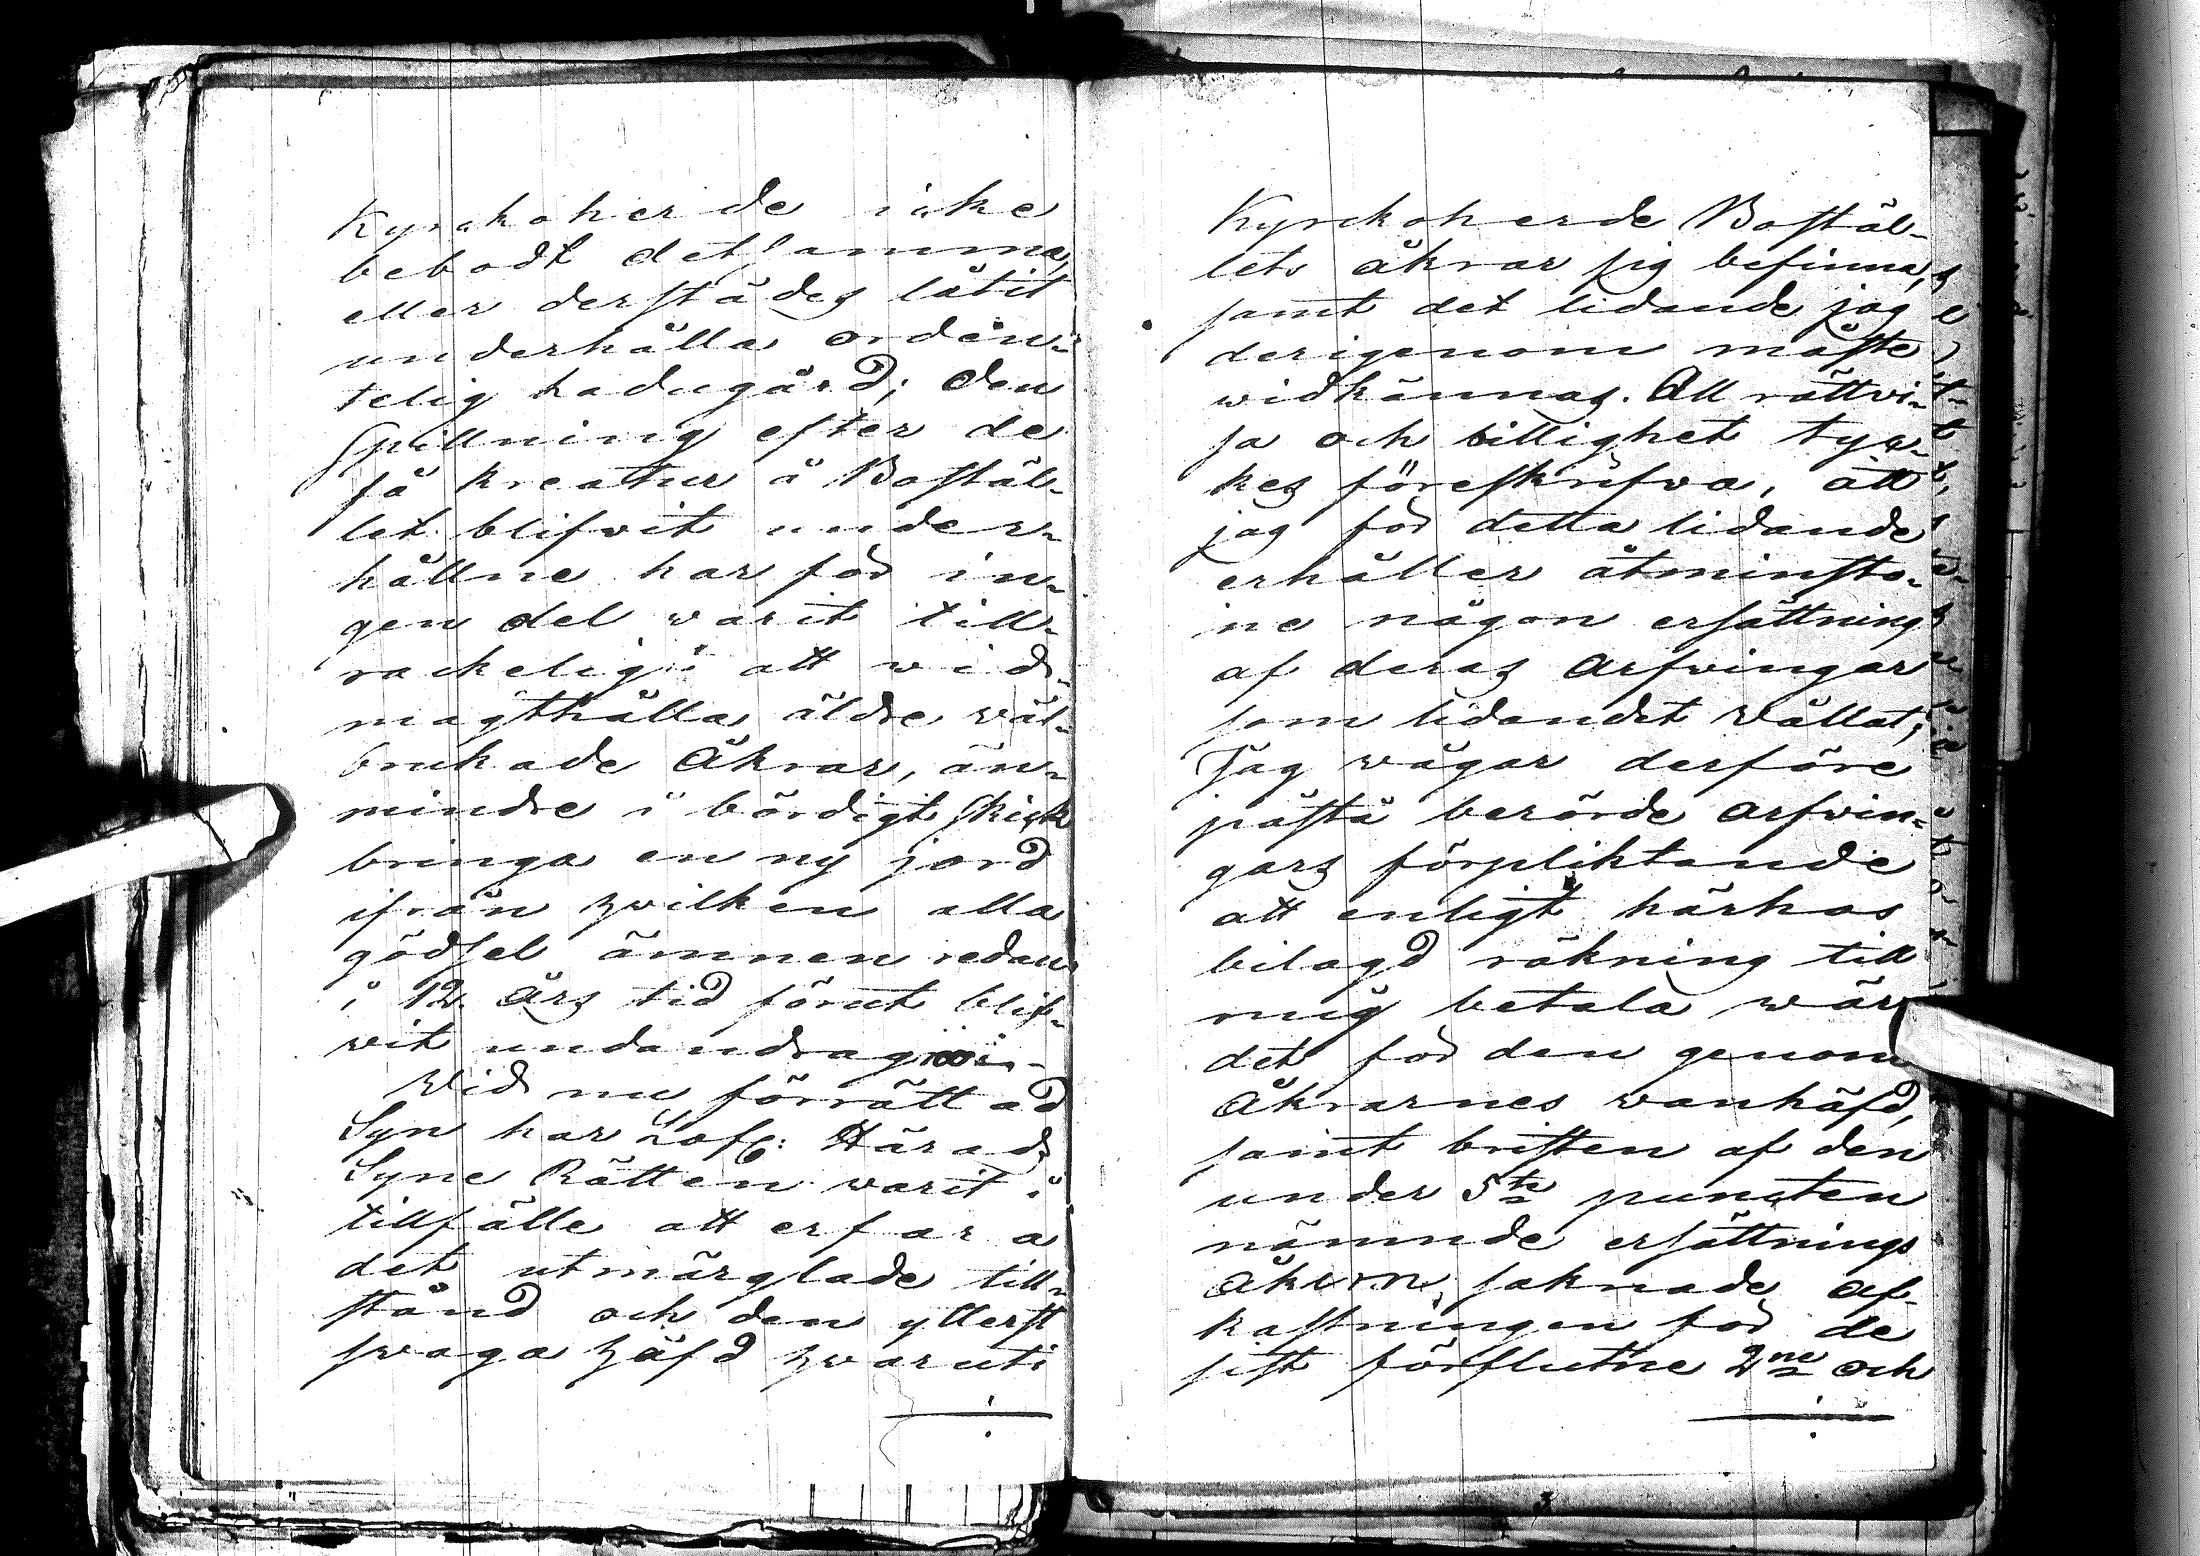 Kyrckoherde icke
bebodt detsamma,
eller derstädes låtit
underhålla orden¬
telig ladugård; den
Spillning efter de
få kreatur å Bostäl¬
let blifvit under¬
hållne har för in¬
gen del warit till¬
rackelig i att wid¬
magthålla äldre wäl¬
brukade Åkrar, än¬
mindre i bördigt skick
bringa en ny jord
ifrån hwilken alla
gödsel ämnen redan
i 12 Års tid förut blif¬
vit undandragen
Wid nu förrättad
Syn har Lofl: Härads
Syne Rätten warit i
tillfälle att erfara
det utmärglade till¬
stånd och den ytterst
swaga häfd hwaruti
Kyrckoherde Bostäl¬
lets åkrar sig befinna,
samt det lidande jag
derigenom måste
widkännas. All rättvi¬
sa och billighet tyc¬
kes föreskrifva, att
jag för detta lidande
erhåller åtminsto¬
ne någon ersättning
af deras Arfvingar
som lidandet wållat;
Jag wågar derföre
påstå berörde arfvin¬
gars förpliktande
att enligt härhos
bilagd räkning till
mig betala wär
det för den genom
Åkrarnes wanhäfd,
samt bristen af den
under 5te puncten
nämnde ersättnings
åkern, saknade af¬
kastningen för de
sist förflutne 2ne och